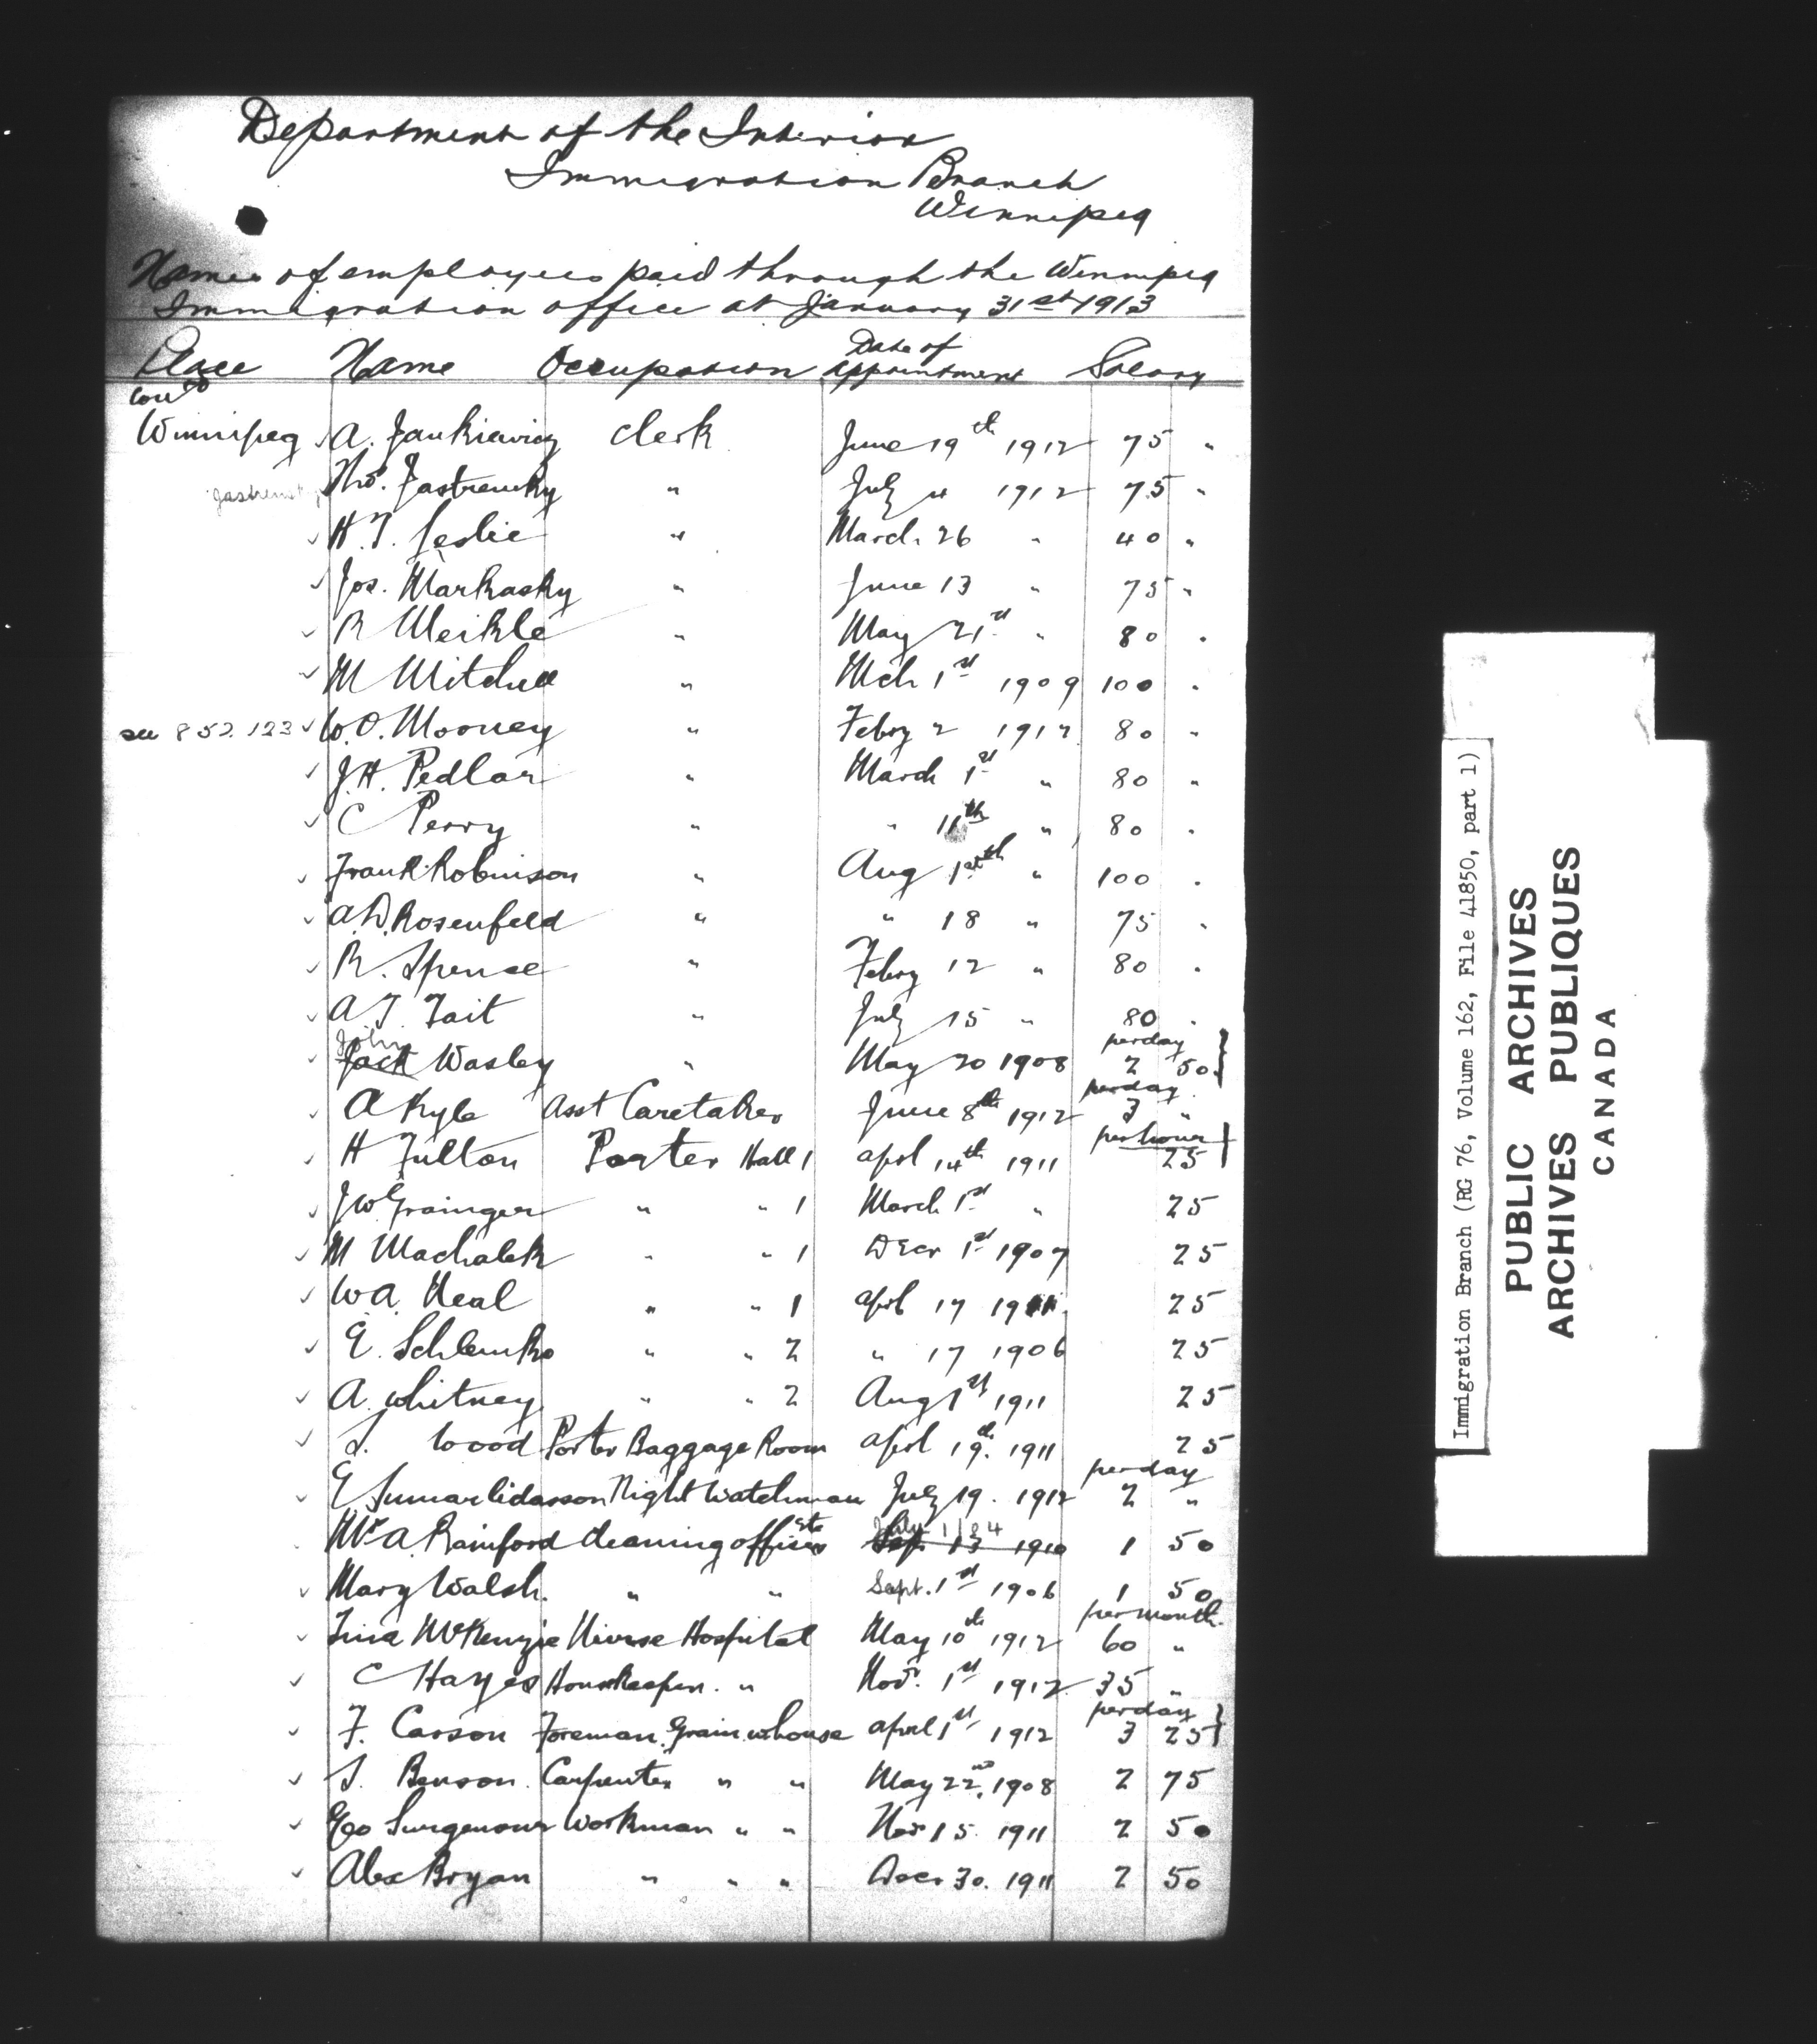 Department of the Interior
Immigration Branch
Winnipeg
Names of employees paid through the Winnipeg
Immigration office at January 31st 1913
Place Name Occupation Date of appointment Salary
Con'd
Winnipeg A. Jankiewicz Clerk June 19th 1912 75 "
Jastremsky Tho. Jastremsky " July 4 1912 75 "
H.T. Leslie " March 26 " 40 "
Jos. Markasky " June 13 " 75 "
R Meikle " May 21st " 80 "
M Mitchell " Mch 1st 1909 100 "
see 852.123 W.O. Mooney " Febry 2 1912 80 "
J.H. Pedlar " March 1st " 80 "
C Perry " " 11th " 80 "
Frank Robinson " Aug 1st " 100 "
A.D. Rosenfeld " " 18 " 75 "
R. Spence " Febry 12 " 80 "
A T. Tait " July 15 " 80 "
John per day
Jack Wasley " May 20 1908 2 50
per day
A Kyle Asst Caretaker June 8th 1912 3 "
per hour
H Fulton Porter Hall 1 April 14th 1911 25
J W Grainger " " 1 March 1st " 25
M Machalek " " 1 Decr 1st 1907 25
W.A. Neal " " 1 April 17 1911 25
E. Schlemko " " 2 " 17 1906 25
A. Whitney " " 2 Aug 1st 1911 25
S. Wood Porter Baggage Room April 19th 1911 25
per day
E Sumarlidasson Night Watchman July 19. 1912 2 "
etc July 1/84
A. Rainford Cleaning offices Sept 13 1910 1 50
Mary Walsh. " " Sept. 1st 1906 1 50
per month
Tina McKenzie Nurse Hospital May 10th 1912 60 "
C Hayes Housekeeper. " Nov. 1st 1912 35 "
per day
F. Carson Foreman. Grain whouse April 1st 1912 3 25
S. Benson. Carpenter " " May 22nd 1908 2 75
Geo Surgenour Workman " " Nov 15. 1911 2 50
Alex Bryan " " " Decr 30. 1911 2 50
Immigration Branch (RG 76, Volume 162, File 41850, part 1)
PUBLIC ARCHIVES
ARCHIVES PUBLIQUES
CANADA